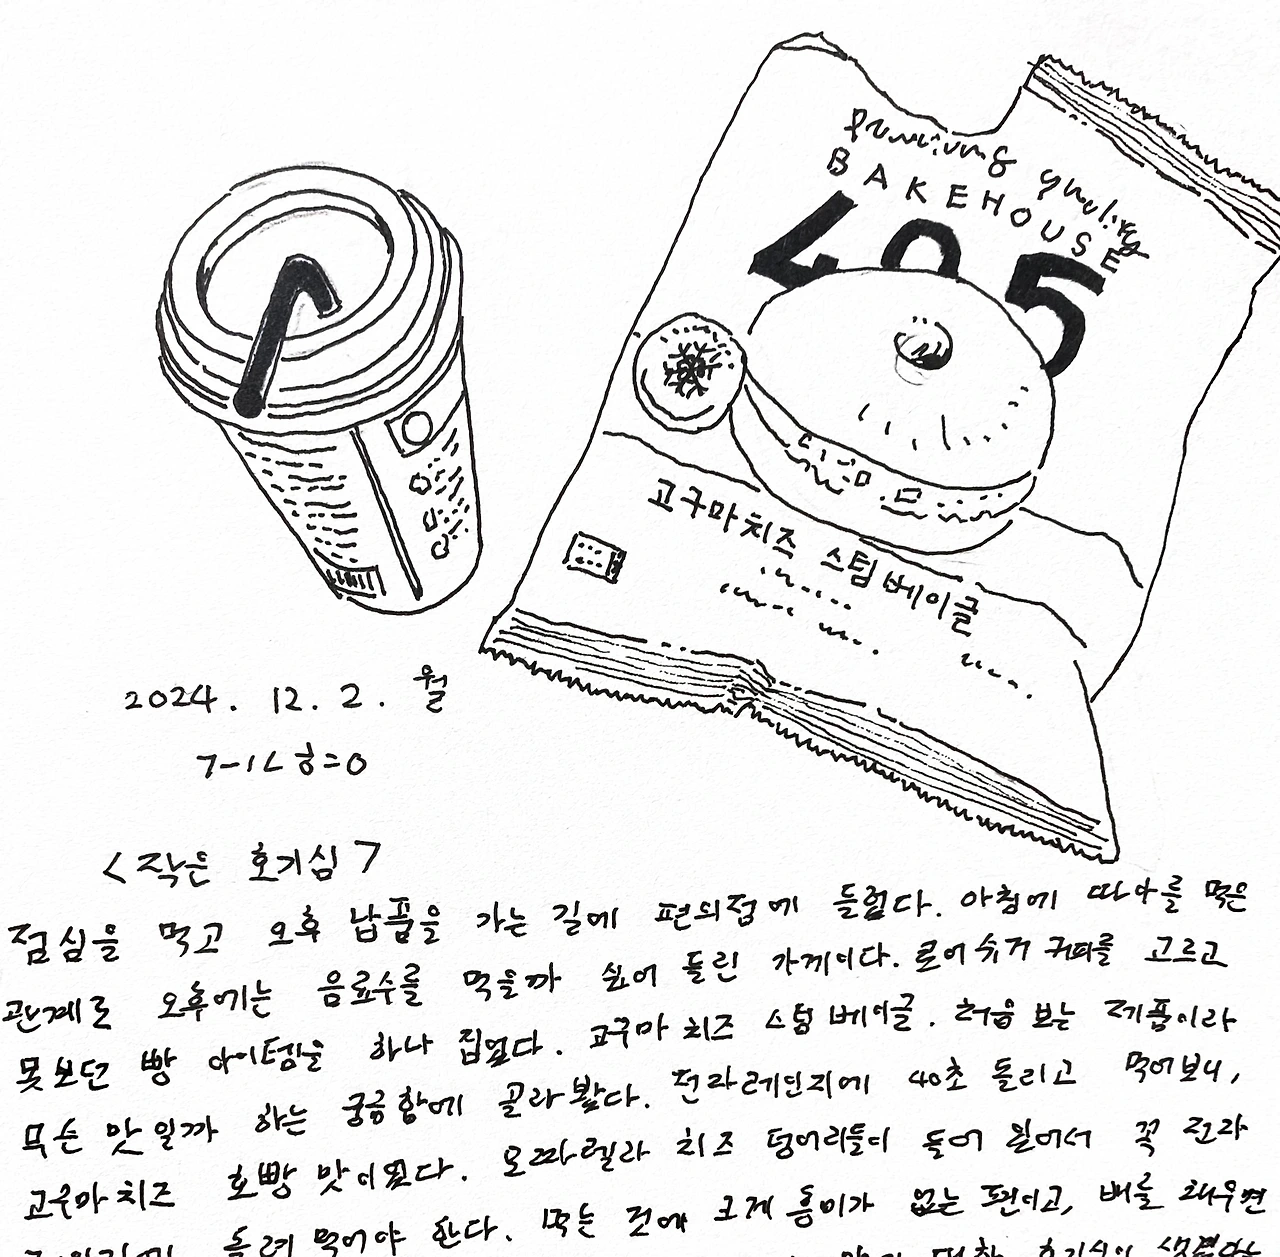 BAKEHOUSE
405
고구마치즈 스팀베이글
2024. 12. 2. 월
<작은 호기심>
점심을 먹고 오후 납품을 가는 길에 편의점에 들렀다. 아침에 따아를 먹은
관계로 오후에는 음료수를 먹을까 싶어 들린 가게이다. 콜어쥬거 커피를 고르고
못보던 빵 아이템을 하나 집었다. 고구마치즈 스팀베이글. 처음 보는 제품이라
무슨 맛일까 하는 궁금함에 골라봤다. 전자레인지에 40초 돌리고 먹어보니,
고구마치즈 호빵 맛이었다. 모짜렐라 치즈 덩어리들이 들어 있어서 꼭 전자
돌려 먹어야 한다. 먹는 것에 크게 흥미가 없는 편이고, 배를 채우면